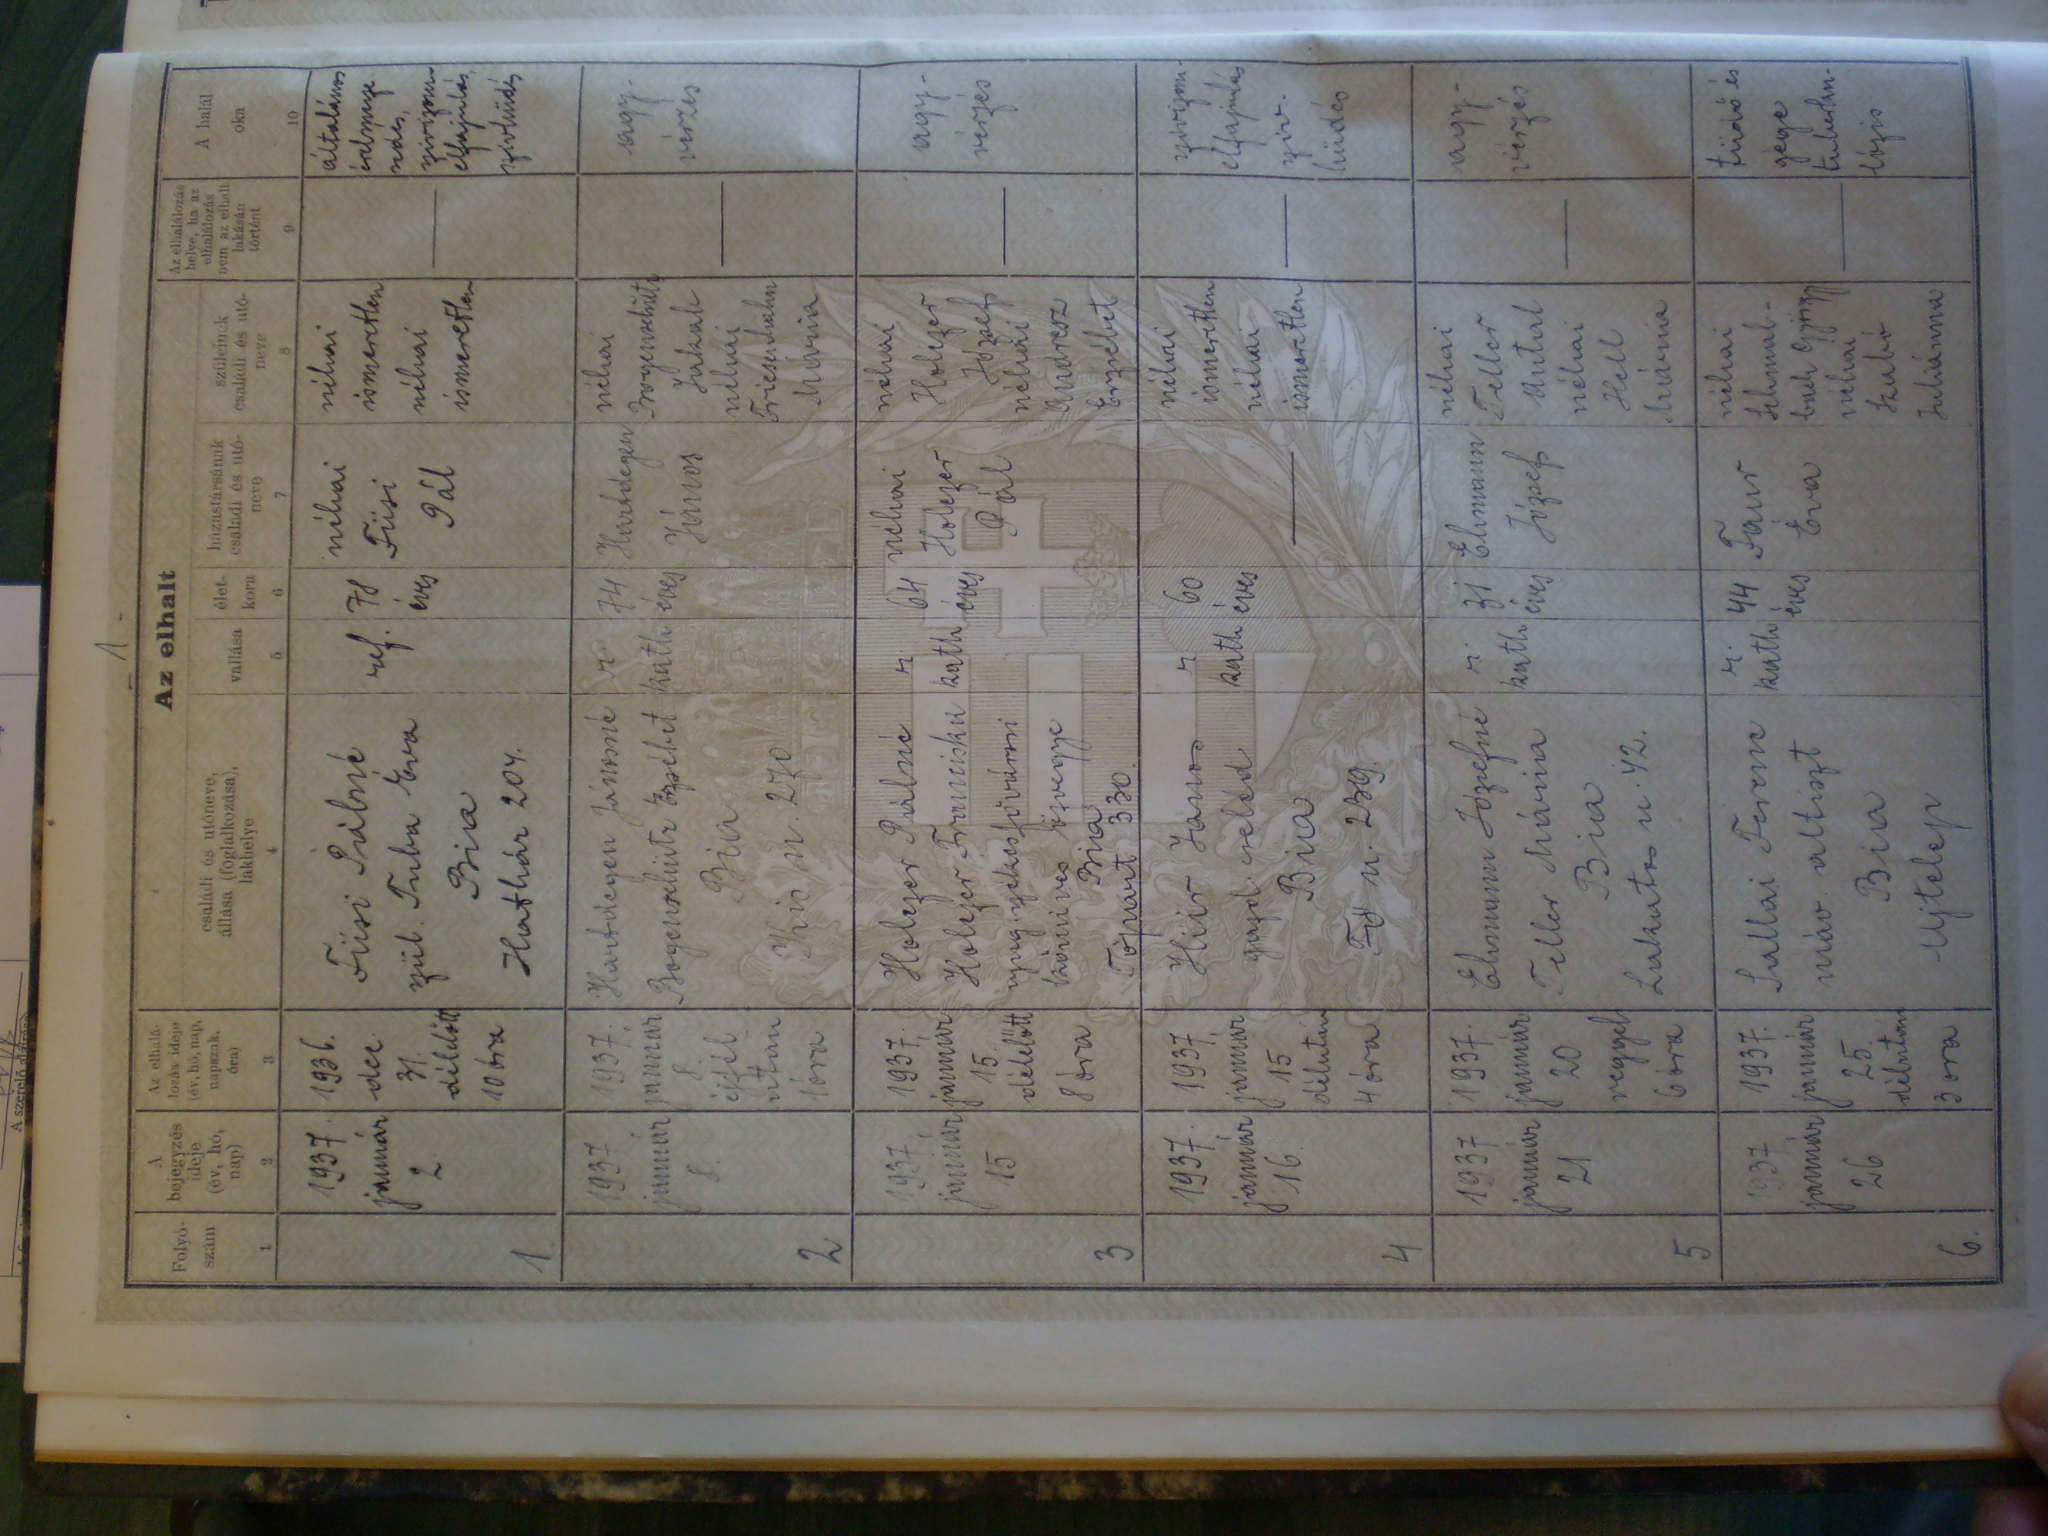 - 1 -
Az elhalt
Folyó-
szám
A
bejegyzés
ideje
(év, hó,
nap)
Az elhalá-
lozás ideje
(év, hó, nap,
napszak,
óra)
családi és utóneve,
állása (foglalkozása),
lakhelye
vallása
élet-
kora
házastársának
családi és utó-
neve
szüleinek
családi és utó-
neve
Az elhalálozás
helye, ha az
elhalálozás
nem az elhalt
lakásán
történt
A halál
oka
1
2
3
4
5
6
7
8
9
10
1.
1937.
január
2.
1936.
dec.
31.
délelőtt
10 óra
Füsi Pálné
szül. Tuba Éva
Bia
Határ 204.
ref.
78
éves
néhai
Füsi
Pál
néhai
ismeretlen
néhai
ismeretlen
—
általános
érelmesze
sedés,
szívizom
elfajulás,
szívhűdés
2
1937
január
8.
1937.
január
8.
éjfél
után
1 óra
Hardegen Jánosné
Bogenschütz Erzsébet
Bia
Kis u. 270
r.
kath
74
éves
Hardegen
János
néhai
Bogenschütz
Jakab
néhai
Mária
—
agy-
vérzés
3
1937.
január
15
1937.
január
15.
délelőtt
8 óra
Holczer Pálné
Holczer Franciska
nyug székesfővárosi
kőműves özvegye
Bia
Tópart 330.
r
kath
64
éves
néhai
Holczer
Pál
néhai
Holczer
József
néhai
Erzsébet
—
agy-
vérzés
4
1937.
január
16.
1937.
január
15
délután
4 óra
János
gazd. cseléd
Bia
Fő u. 239.
r
kath
60
éves
—
néhai
ismeretlen
néhai
ismeretlen
—
szívizom-
elfajulás
szív-
hűdés
5
1937
január
21
1937.
január
20
reggel
6 óra
Ehmann Józsefné
Teller Mária
Bia
Lakatos u. 42.
r.
kath
31
éves
Ehmann
József
néhai
Teller
Antal
néhai
Hell
Mária
—
agy-
vérzés
6.
1937
január
26
1937.
január
25
délután
3 óra
Sallai Ferenc
máv. altiszt
Bia
Ujtelep
r.
kath
44
éves
Éva
néhai
Schmal-
bach György
néhai
Szabó
Juliánna
—
tüdő és
gége
tuberku-
lózis